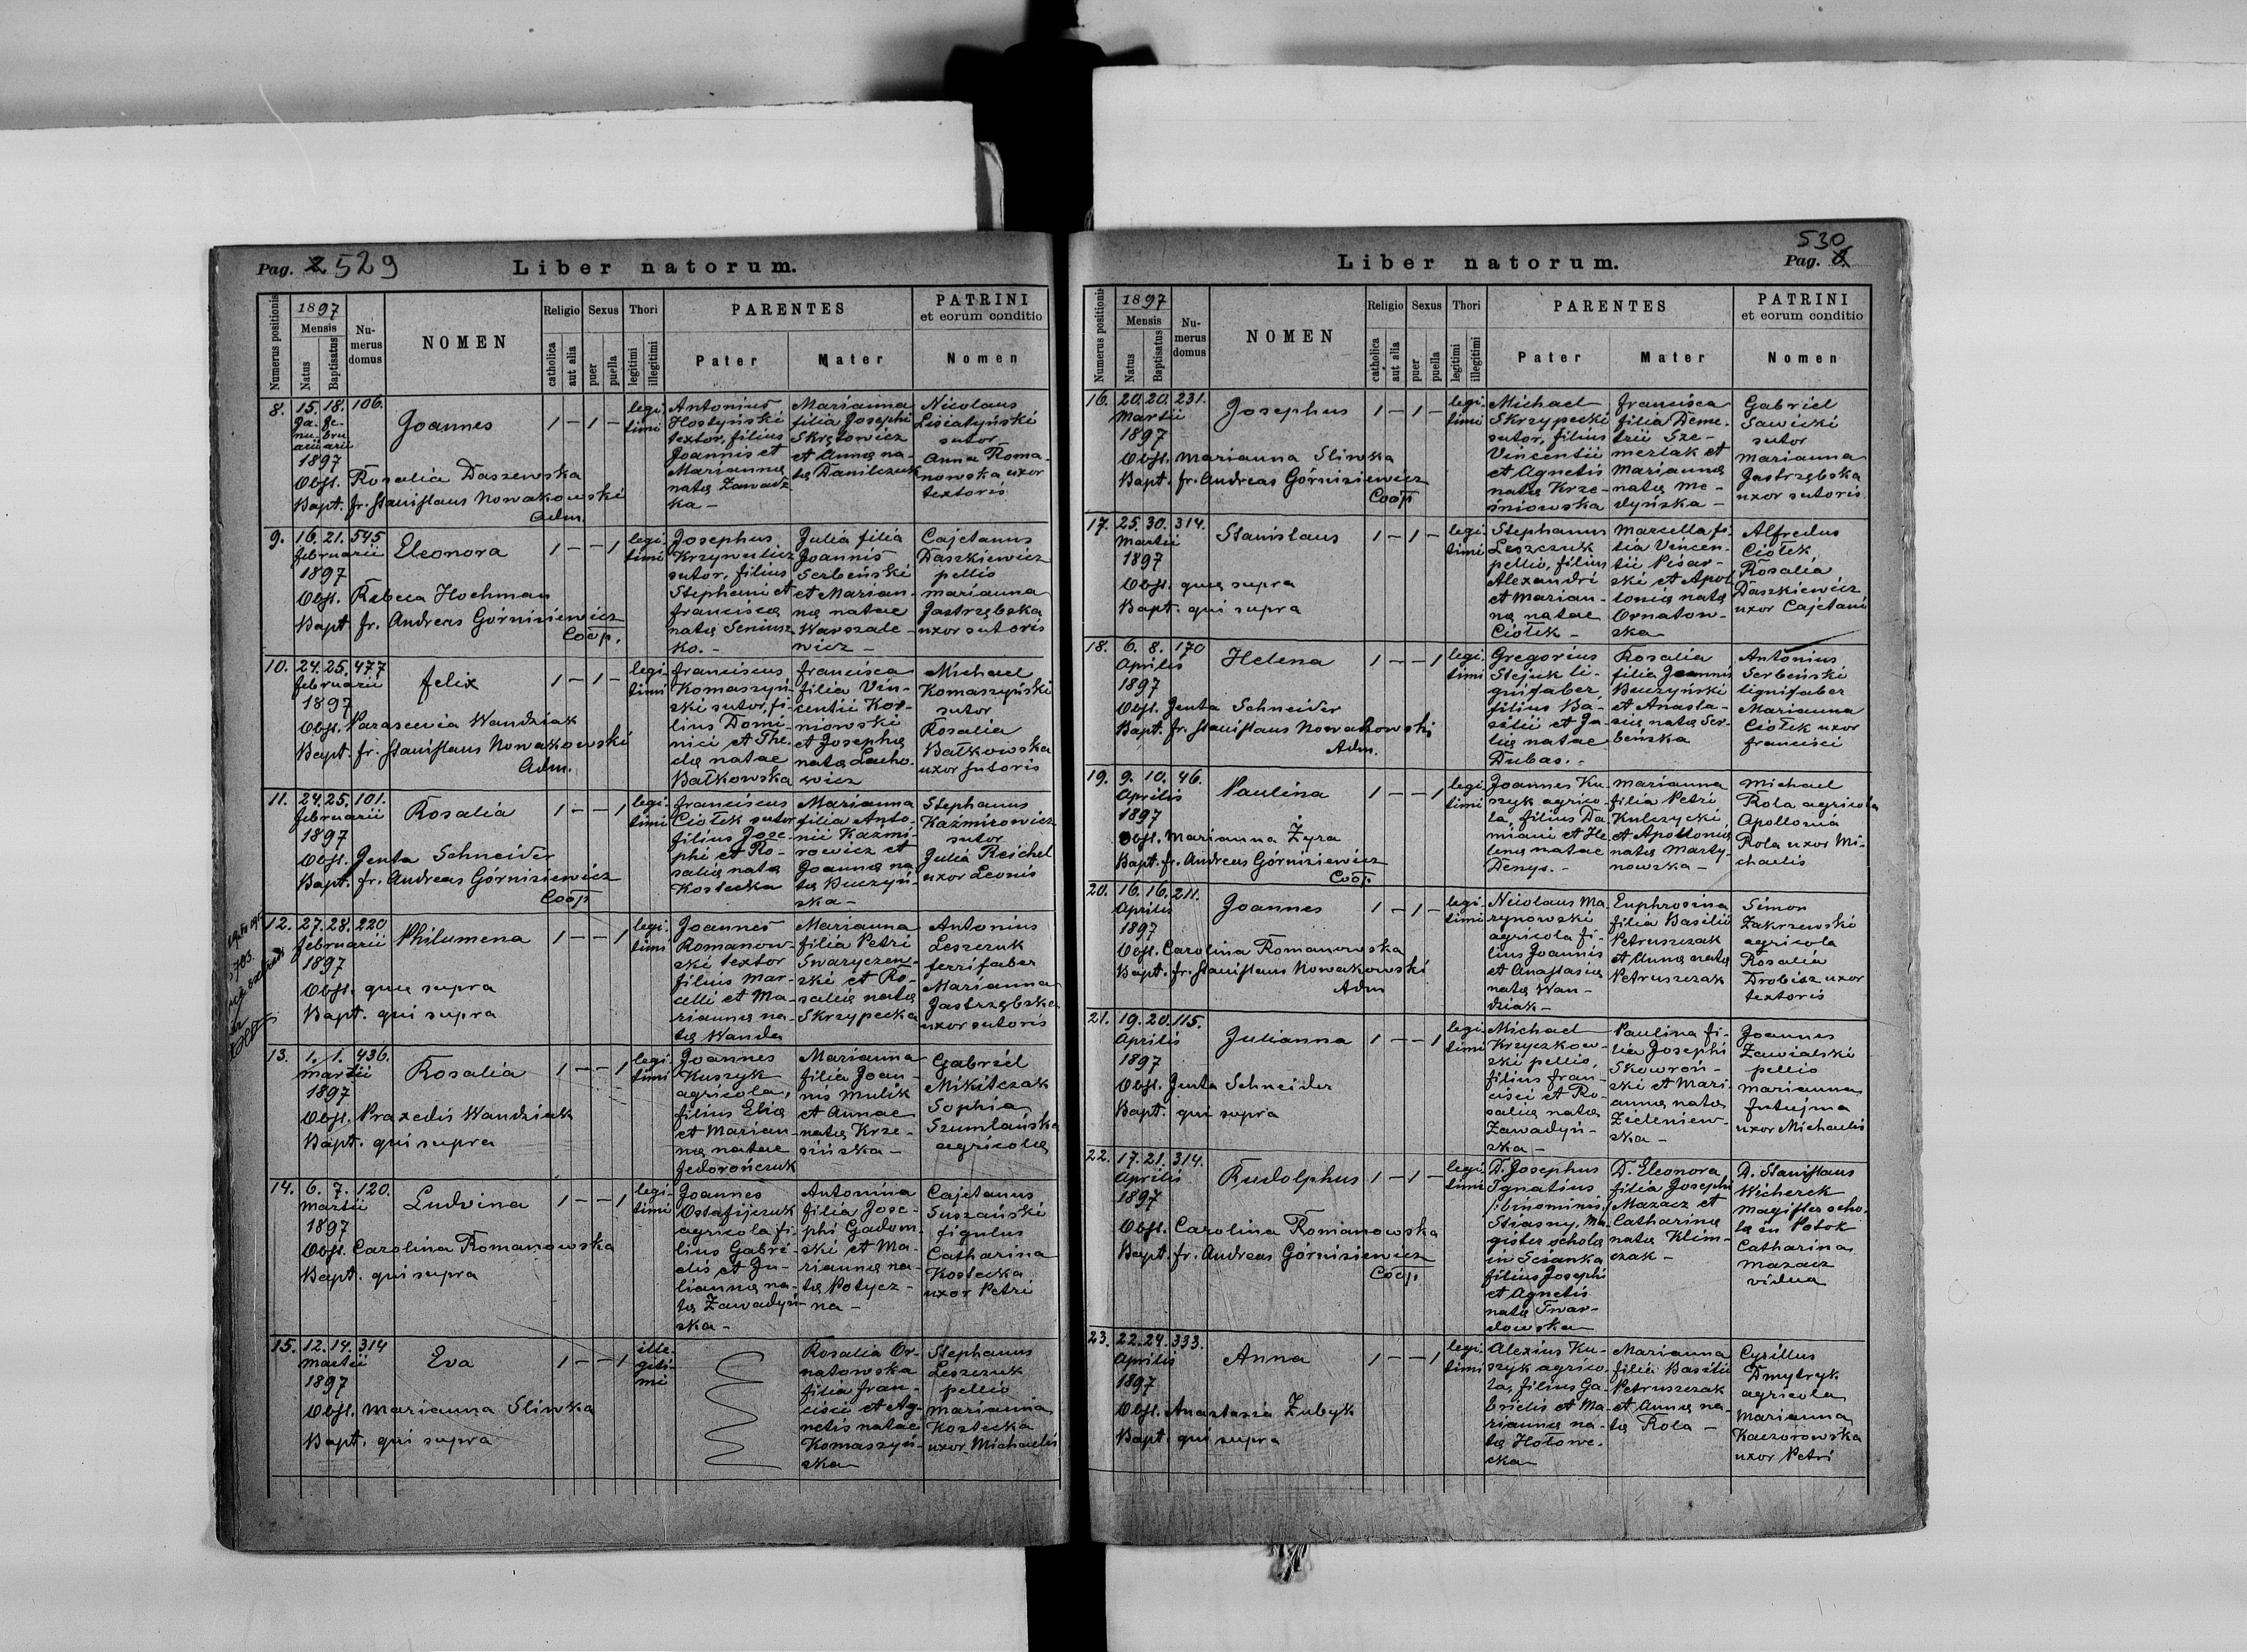 Pag. 2 529
Liber natorum.
Numerus positionis
1897
Mensis
Natus
Baptisatus
Nu-
merus
domus
NOMEN
Religio
catholica
aut alia
Sexus
puer
puella
Thori
legitimi
illegitimi
PARENTES
Pater
Mater
PATRINI
et eorum conditio
Nomen
8. 15. 18. 106.
Ja- Fe-
nu- bru
arii arii
1897
Joannes
1 – 1 –
legi-
timi
Antonius
Hostyński
textor, filius
Joannis et
Mariannæ
natæ Zawadz
ka –
Marianna
filia Josephi
Skrętowicz
et Annæ na-
tæ Danilczuk
Nicolaus
Lisiatyński
sutor
Anna Roma-
nowska uxor
textoris
Obst. Rosalia Daszewska
Bapt. fr. Stanislaus Nowakowski
Adm.
9. 16. 21. 545
Februarii
1897
Eleonora
1 – – 1
legi-
timi
Josephus
Krzywulicz
sutor, filius
Stephani et
Franciscæ
natæ Seniusz-
ko. –
Julia filia
Joannis
Serbeński
et Marian-
næ natae
Warszale-
wicz –
Cajetanus
Daszkiewicz
pellio
Marianna
Jastrzębska
uxor sutoris
Obst. Rebeca Hochman
Bapt. fr. Andreas Górnisiewicz
Coop.
10. 24. 25. 477
Februarii
1897
Felix
1 – 1 –
legi-
timi
Franciscus
Komaszyń-
ski sutor, fi-
lius Domi-
nici et The-
clæ natae
Bałkowska
Francisca
filia Vin-
centii Kor-
niowski
et Josephæ
natæ Lacho-
wicz
Michael
Komaszyński
sutor
Rosalia
Bałkowska
uxor sutoris
Obst. Parascevia Wandziak
Bapt. fr. Stanislaus Nowakowski
Adm.
11. 24. 25. 101.
Februarii
1897
Rosalia
1 – – 1
legi-
timi
Franciscus
Ciołek sutor
filius Jose-
phi et Ro-
saliæ natæ
Kostecka
Marianna
filia Anto-
nii Kaźmi-
rowicz et
Joannæ na-
tæ Buczyń-
ska –
Stephanus
Kaźmirowicz
sutor
Julia Reichel
uxor Leonis
Obst. Jenta Schneider
Bapt. fr. Andreas Górnisiewicz
Coop
12. 27. 28. 220
Februarii
1897
Philumena
1 – – 1
legi-
timi
Joannes
Romanow-
ski textor
filius Mar-
celli et Ma-
riannæ na-
tæ Wanda
Marianna
filia Petri
Swaryczew-
ski et Ro-
saliæ natæ
Skrzypecka
Antonius
Leszczuk
ferrifaber
Marianna
Jastrzębska
uxor sutoris
Obst. quæ supra
Bapt. qui supra
13. 1. 1. 436.
Martii
1897
Rosalia
1 – – 1
legi-
timi
Joannes
Kuszyk
agricola,
filius Eliæ
et Marian-
næ natae
Fedorończuk
Marianna
filia Joan-
nis Mulik
et Annae
natæ Krze-
sińska –
Gabriel
Mikitczak
Sophia
Szumlańska
agricolæ
Obst. Praxedis Wandziak
Bapt. qui supra
14. 6. 7. 120.
Martii
1897
Ludvina
1 – – 1
legi-
timi
Joannes
Ostafijczuk
agricola fi-
lius Gabri-
elis et Ju-
liannæ na-
tæ Zawadyń-
ska –
Antonina
filia Jose-
phi Gadom-
ski et Ma-
riannæ na-
tæ Potycz-
na –
Cajetanus
Suszański
figulus
Catharina
Kostecka
uxor Petri
Obst. Carolina Romanowska
Bapt. qui supra
15. 12. 14. 314
Martii
1897
Eva
1 – – 1
ille-
giti-
mi
Rosalia Or-
natowska
filia Fran-
cisci et Ag-
netis natae
Komaszyń-
ska
Stephanus
Leszczuk
pellio
Marianna
Kostecka
uxor Michaelis
Obst. Marianna Sliwka
Bapt. qui supra
530
Pag.
Liber natorum.
Numerus positionis
1897
Mensis
Natus
Baptisatus
Nu-
merus
domus
NOMEN
Religio
catholica
aut alia
Sexus
puer
puella
Thori
legitimi
illegitimi
PARENTES
Pater
Mater
PATRINI
et eorum conditio
Nomen
16. 20. 20. 231.
Martii
1897
Josephus
1 – 1 –
legi-
timi
Michael
Skrzypecki
sutor, filius
Vincentii
et Agnetis
natæ Krze-
śniowska
Francisca
filia Deme-
trii Sze-
merlak et
Mariannæ
natæ Me-
dyńska –
Gabriel
Sawicki
sutor
Marianna
Jastrzębska
uxor sutoris
Obst. Marianna Sliwka
Bapt. fr. Andreas Górnisiewicz
Coop
17. 25. 30. 314.
Martii
1897
Stanislaus
1 – 1 –
legi-
timi
Stephanus
Leszczuk
pellio, filius
Alexandri
et Marian-
næ natae
Ciołek –
Marcella fi-
lia Vincen-
tii Pisar-
ski et Apol
loniæ natæ
Ornatow-
ska
Alfredus
Ciołek
Rosalia
Daszkiewicz
uxor Cajetani
Obst. quæ supra
Bapt. qui supra
18. 6. 8. 170
Aprilis
1897
Helena
1 – – 1
legi-
timi
Gregorius
Stejuk li-
gnifaber,
filius Ba-
silii et Ju-
liæ natae
Dubas. –
Rosalia
filia Joannis
Buczyński
et Anasta-
siæ natæ Ser-
beńska
Antonius
Serbeński
lignifaber
Marianna
Ciołek uxor
Francisci
Obst. Jenta Schneider
Bapt. fr. Stanislaus Nowakowski
Adm.
19. 9. 10. 46.
Aprilis
1897
Paulina
1 – – 1
legi-
timi
Joannes Ku-
szyk agrico-
la, filius Da-
miani et He-
lenæ natae
Denys. –
Marianna
filia Petri
Kulczycki
et Apolloniæ
natæ Marty-
nowska –
Michael
Rola agricola
Apollonia
Rola uxor Mi-
chaelis
Obst. Marianna Żyra
Bapt. fr. Andreas Górnisiewicz
Coop.
20. 16. 16. 211.
Aprilis
1897
Joannes
1 – 1 –
legi-
timi
Nicolaus Ma-
rynowski
agricola fi-
lius Joannis
et Anastasiæ
natæ Wan-
dziak –
Euphrosina
filia Basilii
Petruszczak
et Annæ natæ
Petruszczak
Simon
Zakrzewski
agricola
Rosalia
Drobisz uxor
textoris
Obst. Carolina Romanowska
Bapt. fr. Stanislaus Nowakowski
Adm
21. 19. 20. 115.
Aprilis
1897
Julianna
1 – – 1
legi-
timi
Michael
Kryczkow-
ski pellio,
filius Fran-
cisci et Ro-
saliæ natæ
Zawadyń-
ska –
Paulina fi-
lia Josephi
Skowroń-
ski et Mari
annæ natæ
Zieleniew-
ska –
Joannes
Zawialski
pellio
Marianna
Futujma
uxor Michaelis
Obst. Jenta Schneider
Bapt. qui supra
22. 17. 21. 314.
Aprilis
1897
Rudolphus
1 – 1 –
legi-
timi
D. Josephus
Ignatius
/:binominis:/
Stiasny, Ma-
gister scholæ
in Ścianka
filius Josephi
et Agnetis
natæ Twar-
dowska
D. Eleonora
filia Josephi
Mazacz et
Catharinæ
natæ Klim-
czak –
D. Stanislaus
Wicherek
Magister scho-
læ in Potok
Catharina
Mazacz
vidua
Obst. Carolina Romanowska
Bapt. fr. Andreas Górnisiewicz
Coop.
23. 22. 24. 333.
Aprilis
1897
Anna
1 – – 1
legi-
timi
Alexius Ku-
szyk agrico-
la, filius Ga-
brielis et Ma-
riannæ na-
tæ Hołowe-
cka
Marianna
filia Basilii
Petruszczak
et Annæ na-
tæ Rola –
Cyrillus
Dmytryk
agricola
Marianna
Kaczorowska
uxor Petri
Obst. Anastasia Zubyk
Bapt. qui supra